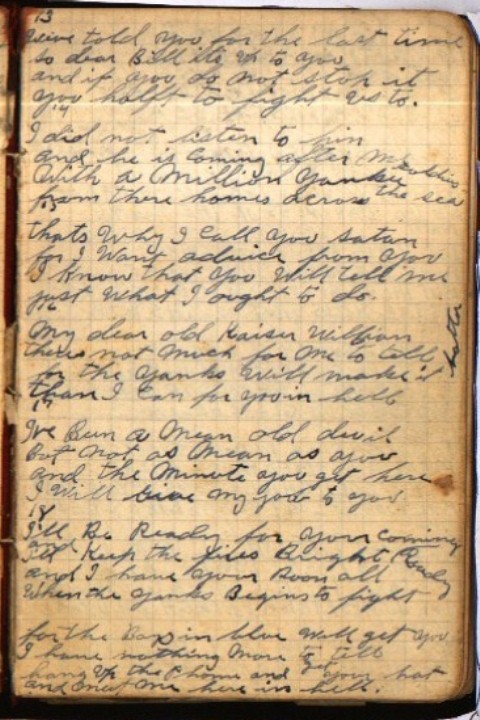 13
Weive told you for the last time
so dear Bill its up to you
and if you do not stop it
you halft to fight us to.
14
I did not listen to him
and he is coming after Me
With a Million Yankee soldiers
from there homes across the sea
15
thats Why I Call You satan
for I Want advice from you
I Know that you Will tell me
just What I ought to do.
16
My dear old Kaiser William
theres not Much for Me to tell
for the Yanks Will make it hotter
than I Can for you in hell
17
Ive Been a Mean old devil
But not as Mean as you
and the Minute you get here
I Will Give my job to you
18
I'll Be Ready for your coming
and I'll Keep the fires Bright
and I have your Room all Ready
When the Yanks Begins to fight
for the Boys in blue Will get you
I have nothing More to tell
hang Up the Phone and get your hat
and meet Me here in hell.